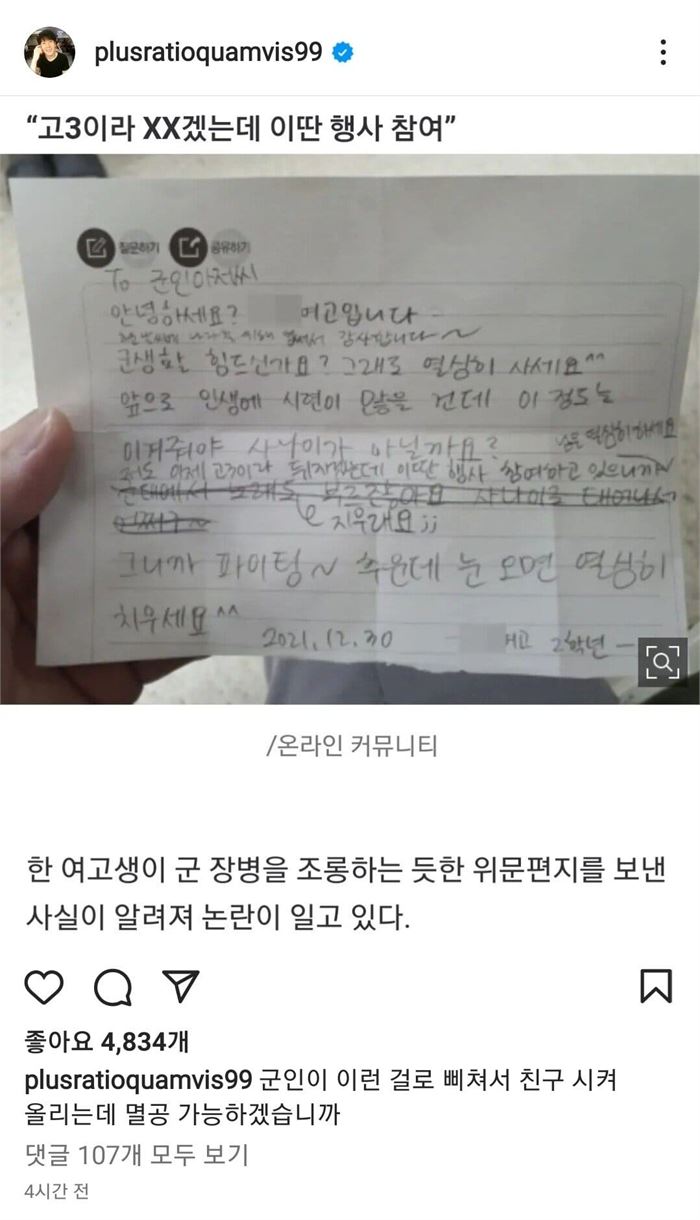 plusratioquamvis99
“고3이라 XX겠는데 이딴 행사 참여”
질문하기 공유하기
To 군인아저씨
안녕하세요? 여고입니다
감사합니다~
군생활 힘드신가요? 그래도 열심히 사세요^^
앞으로 인생에 시련이 많을 건데 이 정도는
이겨줘야 사나이가 아닐까요?
님은 열심히하세요
저도 이제 고3이라 뒤지겠는데 이딴 행사 참여하고 있으니까~
군대에서 노래도 부르잖아요 사나이로 태어나서
어쩌구~
지우래요;;
그니까 파이팅~ 추운데 눈 오면 열심히
치우세요^^
2021.12.30 여고 2학년 —
/온라인 커뮤니티
한 여고생이 군 장병을 조롱하는 듯한 위문편지를 보낸
사실이 알려져 논란이 일고 있다.
좋아요 4,834개
plusratioquamvis99 군인이 이런 걸로 삐쳐서 친구 시켜
올리는데 멸공 가능하겠습니까
댓글 107개 모두 보기
4시간 전